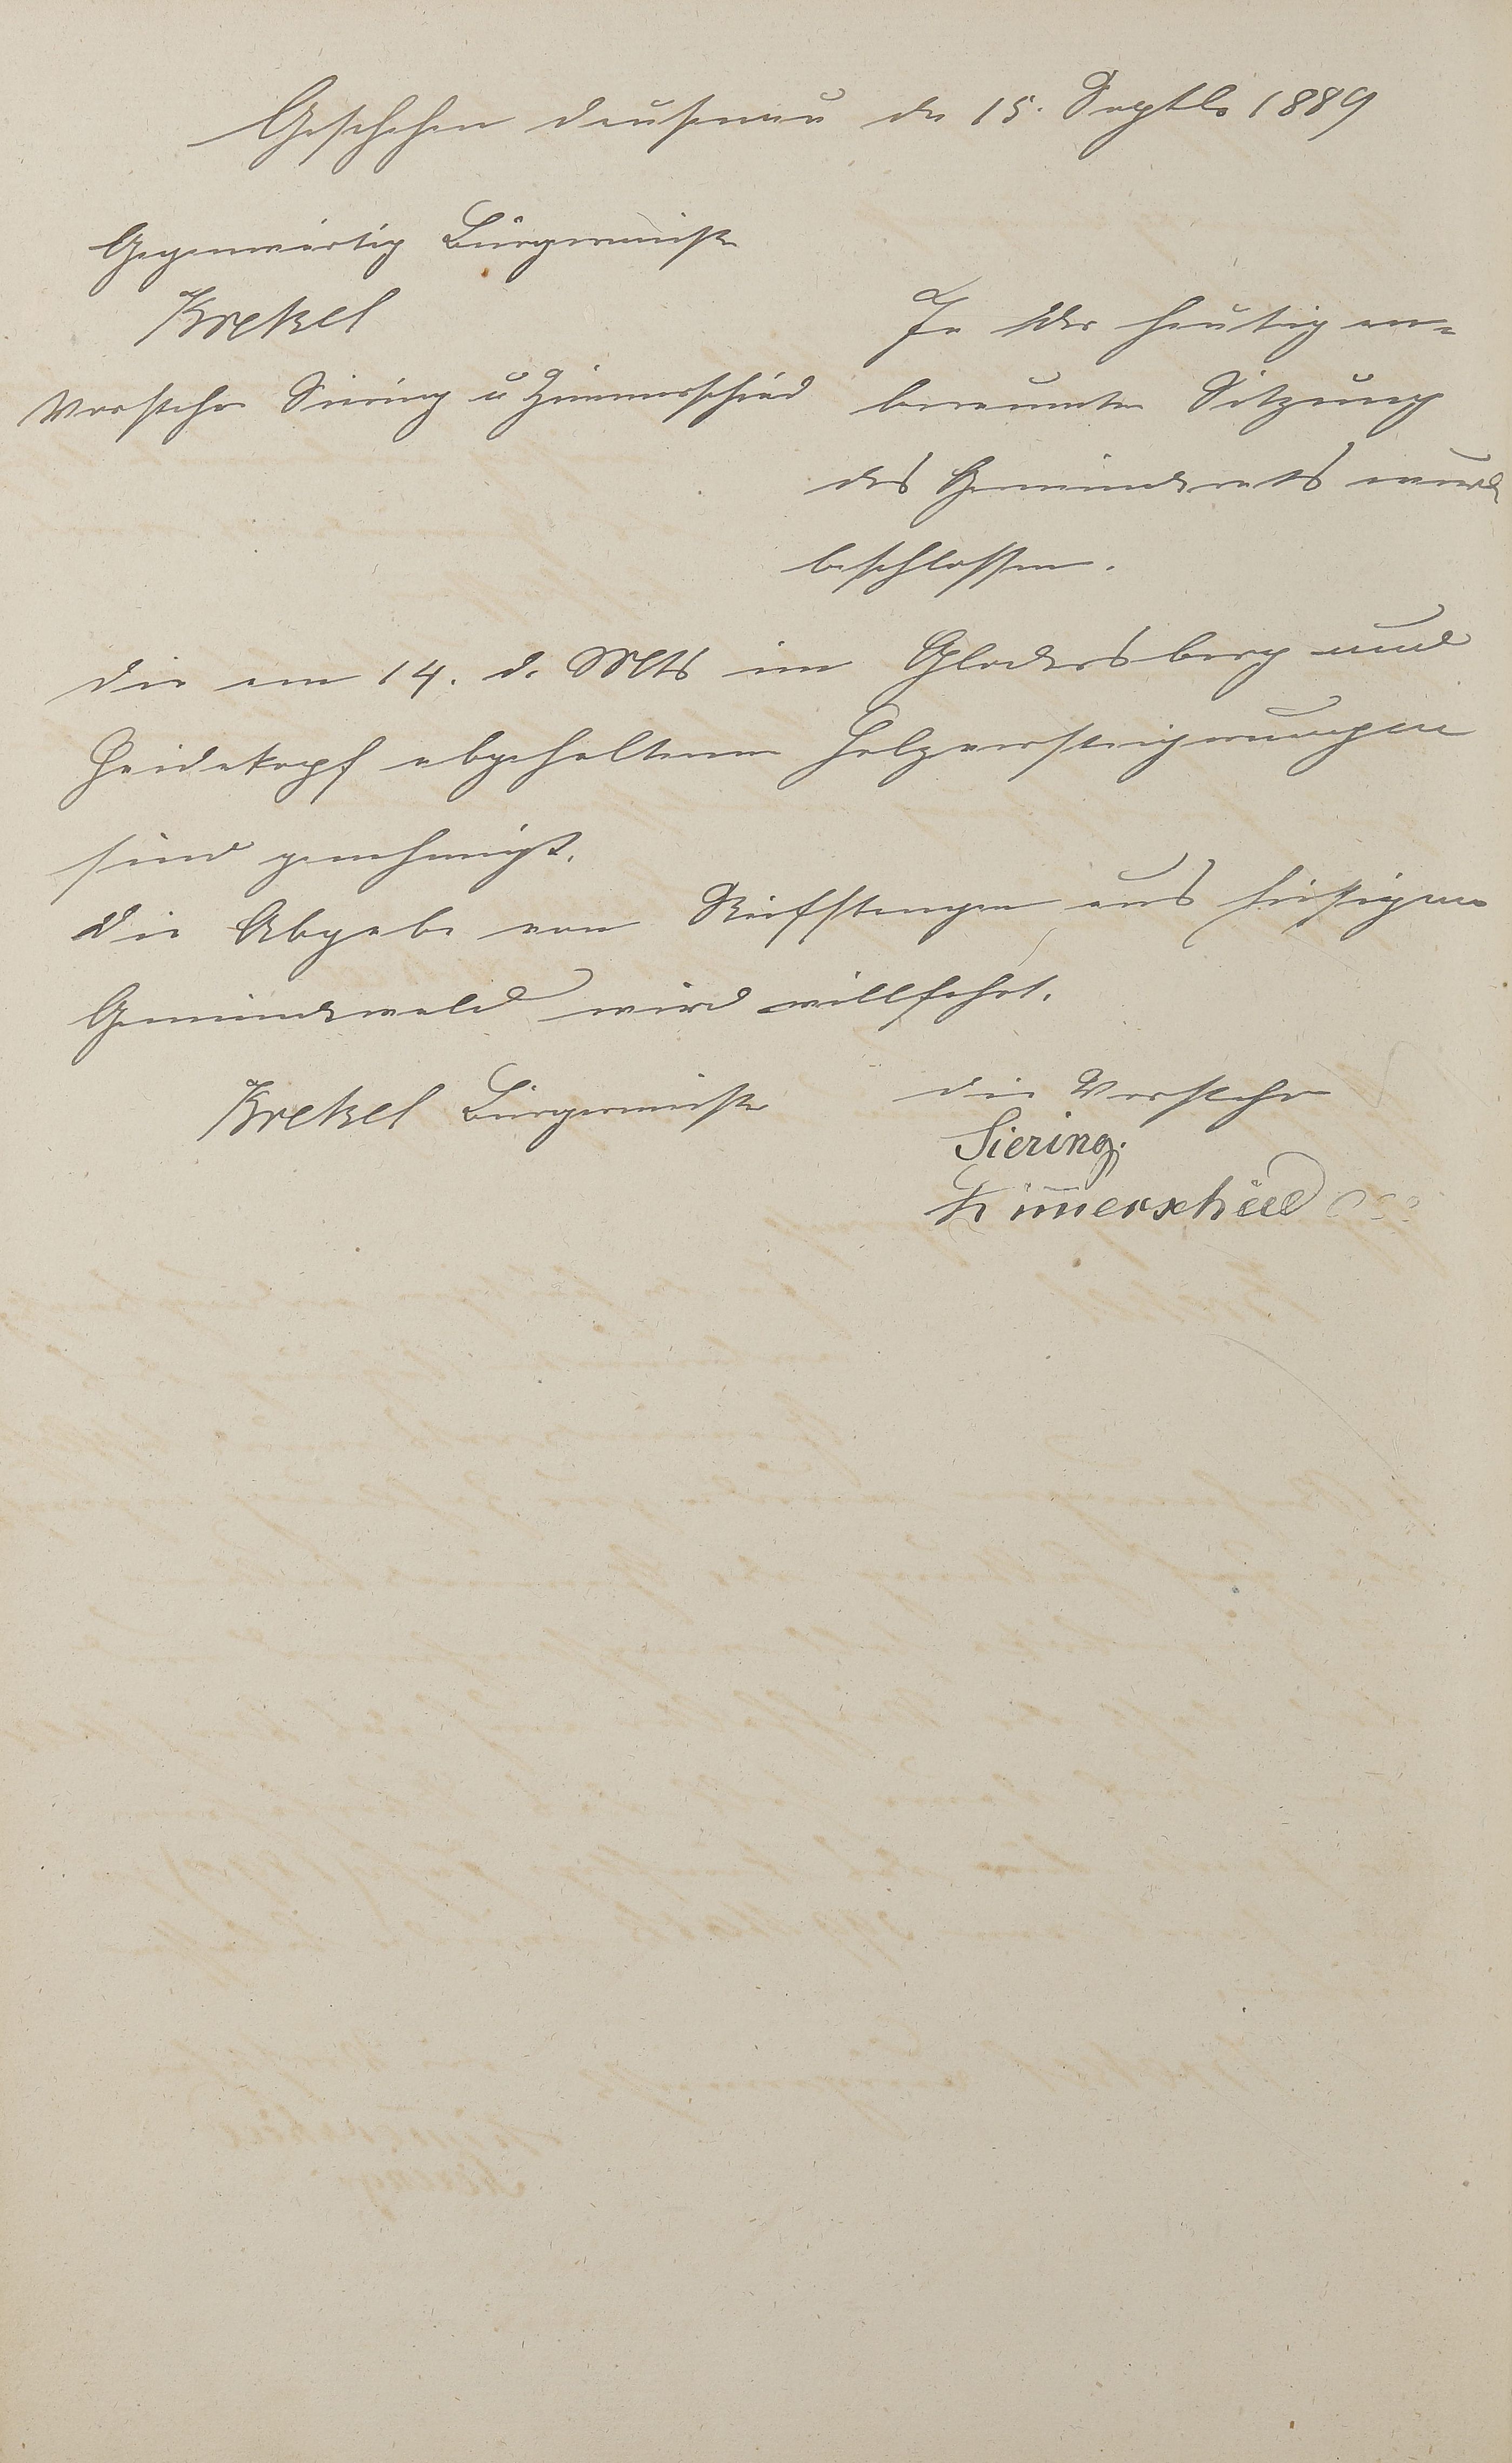 Geschehen Dausenau den 15. Septbr 1889
Gegenwärtig Bürgermeister
Krekel
Vorsteher Siering u Zimmerschied
In der heutig an-
beraumten Sitzung
des Gemeinderats wurde
beschlossen.
Die am 14. d. Mts im berg und
Heidekopf abgehaltenen Holzversteigerungen
sind genehmigt.
Die Abgabe von Reifstangen aus hiesigem
Gemeindewald wird willfahrt.
Krekel Bürgermeister
Die Vorsteher
Siering.
Zimerschied